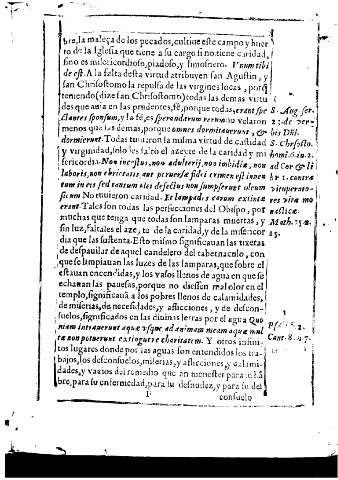 bre, la maleça de los pecados, cultiue este campo y huer
to de la Iglesia que tiene a su cargo si no tiene caridad,
sino es misericordioso, piadoso, y limosnero. Vnum tibi
de est. A la falta desta virtud atribuyen san Agustin, y
san Chrisostomo la repulsa de las virgines locas, porq̃
teniendo (dize san Chrisostomo) todas las demas virtu
des que auia en las prudentes, fé, porque todas, erant spe
ctantes sponsum, y la fé, es sperandarum rerum no velaron
menos que las demas, porque omnes dormitauerunt, &
dormierunt. Todas tuuieron la misma virtud de castidad
y virginidad, solo les faltó el azeyte de la caridad y mi
sericordia. Non incestus, non adulterij, non inuidiæ, non
laboris, non ebrietatis, aut peruersæ fidei crimen est inuen
tum in eis sed tantum oleo defectus non sumpserunt oleum
secum No tuuieron caridad. Et lampades earum extinctæ
erant. Tales son todas las perfecciones del Obispo, por
muchas que tenga que todas son lamparas muertas, y
sin luz, faltales el azeyte de la caridad, y de la misericor
dia que las sustenta. Esto mismo significauan las tixeras
de despauilar de aquel candelero del tabernaculo, con
que se limpiauan las luzes de las lamparas, que sobre el
estauan encendidas, y los vasos llenos de agua en que se
echauan las pauesas, porque no diessen mal olor en el
templo, significauã a los pobres llenos de calamidades,
de miserias, de necesidades, y aflicciones, y de descon-
suelos, significados en las diuinas letras por el agua Quo
niam intrauerunt aquæ vsque ad animam meam aquæ mul
tæ non potuerunt extinguere charitatem. Y otros infini-
tos lugares donde por las aguas son entendidos los tra-
bajos, los desconsuelos, miserias, y aflicciones, y calami-
dades, y vasos del remedio que an menester para su hã
bre, para su enfermedad, para su desnudez, y para su des
consuelo
S. Aug. ser.
S. Chrysosto.
Math. 25.
Cant. 8.